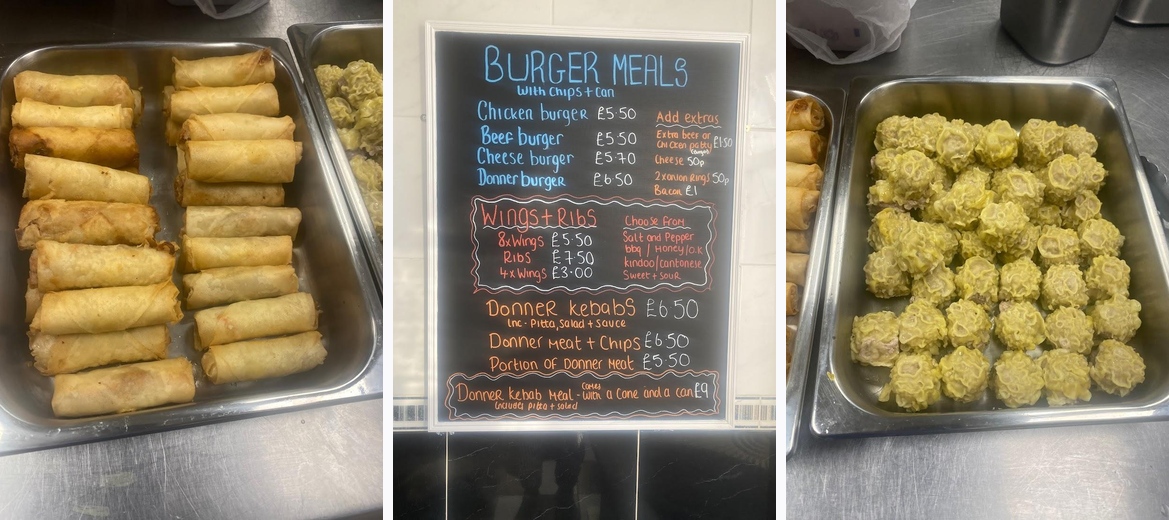 BURGER MEALS
with chips + can
Chicken burger £5·50
Beef burger £5·50
Cheese burger £5·70
Donner burger £6·50
Add extras
Extra beef or
chicken patty £1·50
Cheese 50p
2x onion rings 50p
Bacon £1
WINGS + RIBS
8x Wings £5·50
Ribs £7·50
4x Wings £3·00
Choose from
Salt and Pepper
bbq / Honey/O.K
kindoo/cantonese
Sweet + sour
Donner kebabs £6·50
inc - Pitta, salad + sauce
Donner meat + Chips £6·50
Portion of Donner meat £5·50
Donner kebab meal - comes with a cone and a can £9
includes pitta + salad